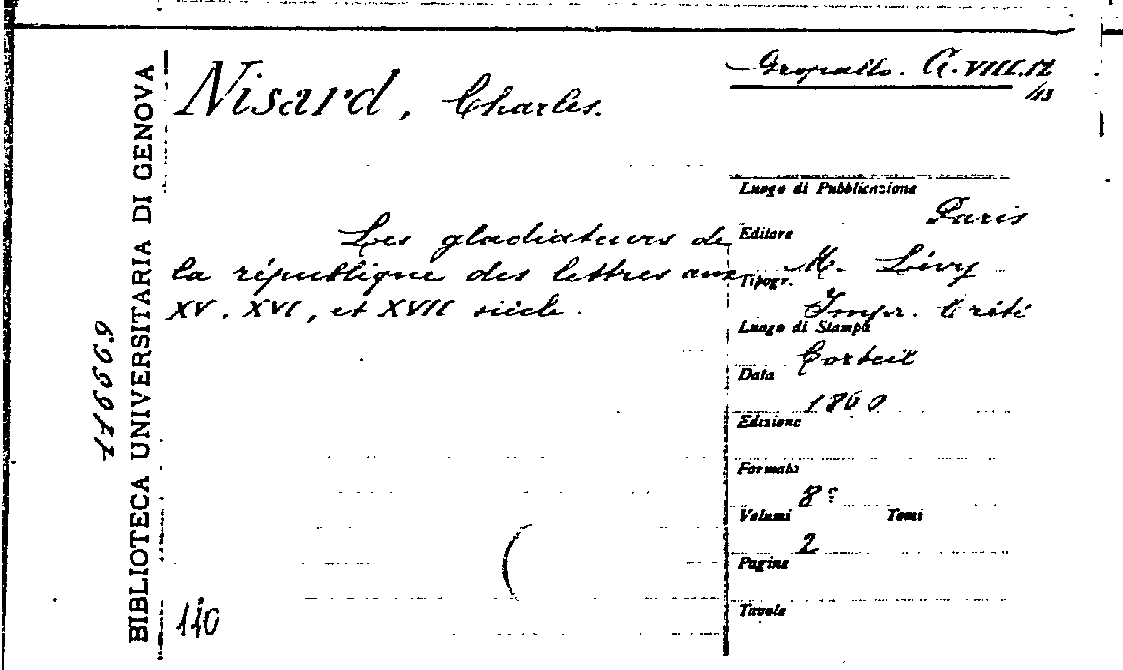 Gropallo. G. VIII. 12
/43
Nisard, Charles.
Les gladiateurs de
la république des lettres aux
XV. XVI, et XVII siècle.
Luogo di Pubblicazione
Paris
Editore
M. Lévy
Tipogr.
Impr. Crété
Luogo di Stampa
Corbeil
Data
1860
Edizione
Formato
8º
Volumi Tomi
2
Pagine
Tavole
BIBLIOTECA UNIVERSITARIA DI GENOVA
110